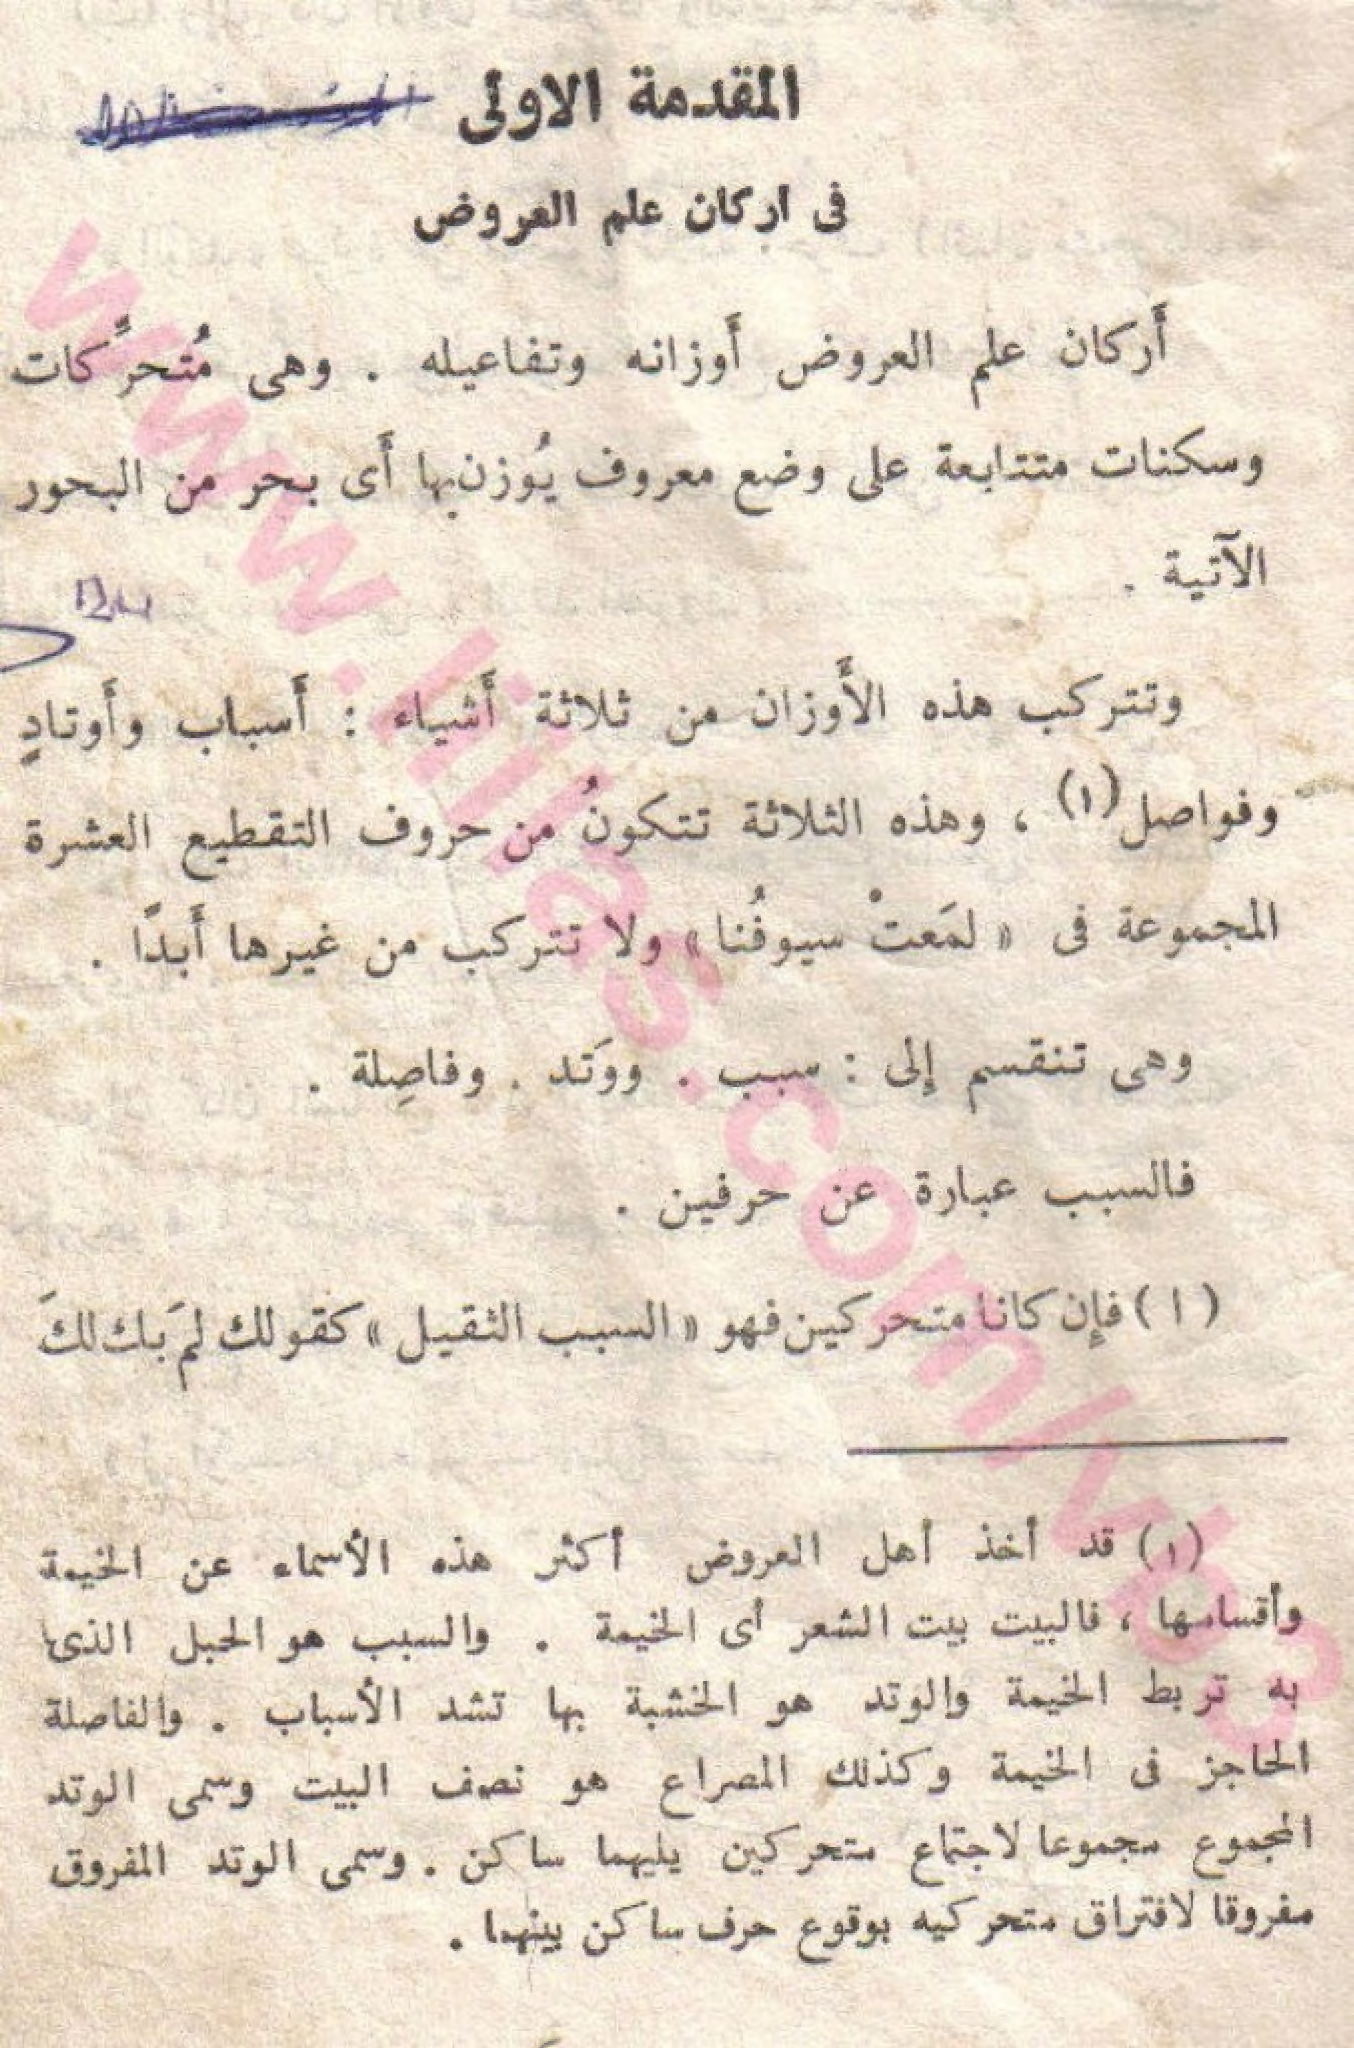 المقدمة الاولى
فى اركان علم العروض
أَركان علم العروض أَوزانه وتفاعيله . وهى مُتحرِّكات
وسكنات متتابعة على وضع معروف يُوزن بها أَى بحر من البحور
الآتية .
وتتركب هذه الأَوزان من ثلاثة أَشياء : أَسباب وأَوتادٍ
وفواصل (١) ، وهذه الثلاثة تتكونُ من حروف التقطيع العشرة
المجموعة فى « لمَعتْ سيوفُنا » ولا تتركب من غيرها أَبدًا .
وهى تنقسم إلى : سبب . ووَتد . وفاصِلة .
فالسبب عبارة عن حرفين .
( ا ) فإن كانا متحركين فهو « السبب الثقيل » كقولك لمَ بك لكَ
(١) قد أخذ أهل العروض أكثر هذه الأسماء عن الخيمة
وأقسامها ، فالبيت بيت الشعر أى الخيمة . والسبب هو الحبل الذى
به تربط الخيمة والوتد هو الخشبة بها تشد الأسباب . والفاصلة
الحاجز فى الخيمة وكذلك المصراع هو نصف البيت وسمى الوتد
المجموع مجموعا لاجتماع متحركين يليهما ساكن . وسمى الوتد المفروق
مفروقا لافتراق متحركيه بوقوع حرف ساكن بينهما .
www.lilas.com/vb3